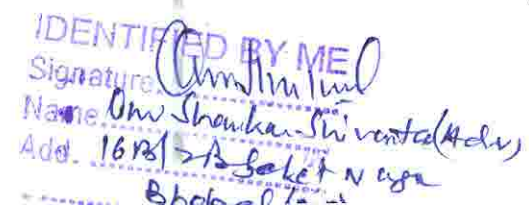 IDENTIFIED BY ME
Signature
Name Om Shankar Shrivastava (Adv)
Add. 16B/ Saket Nagar
Bhopal